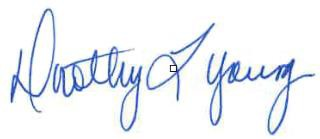 Dorothy L Young